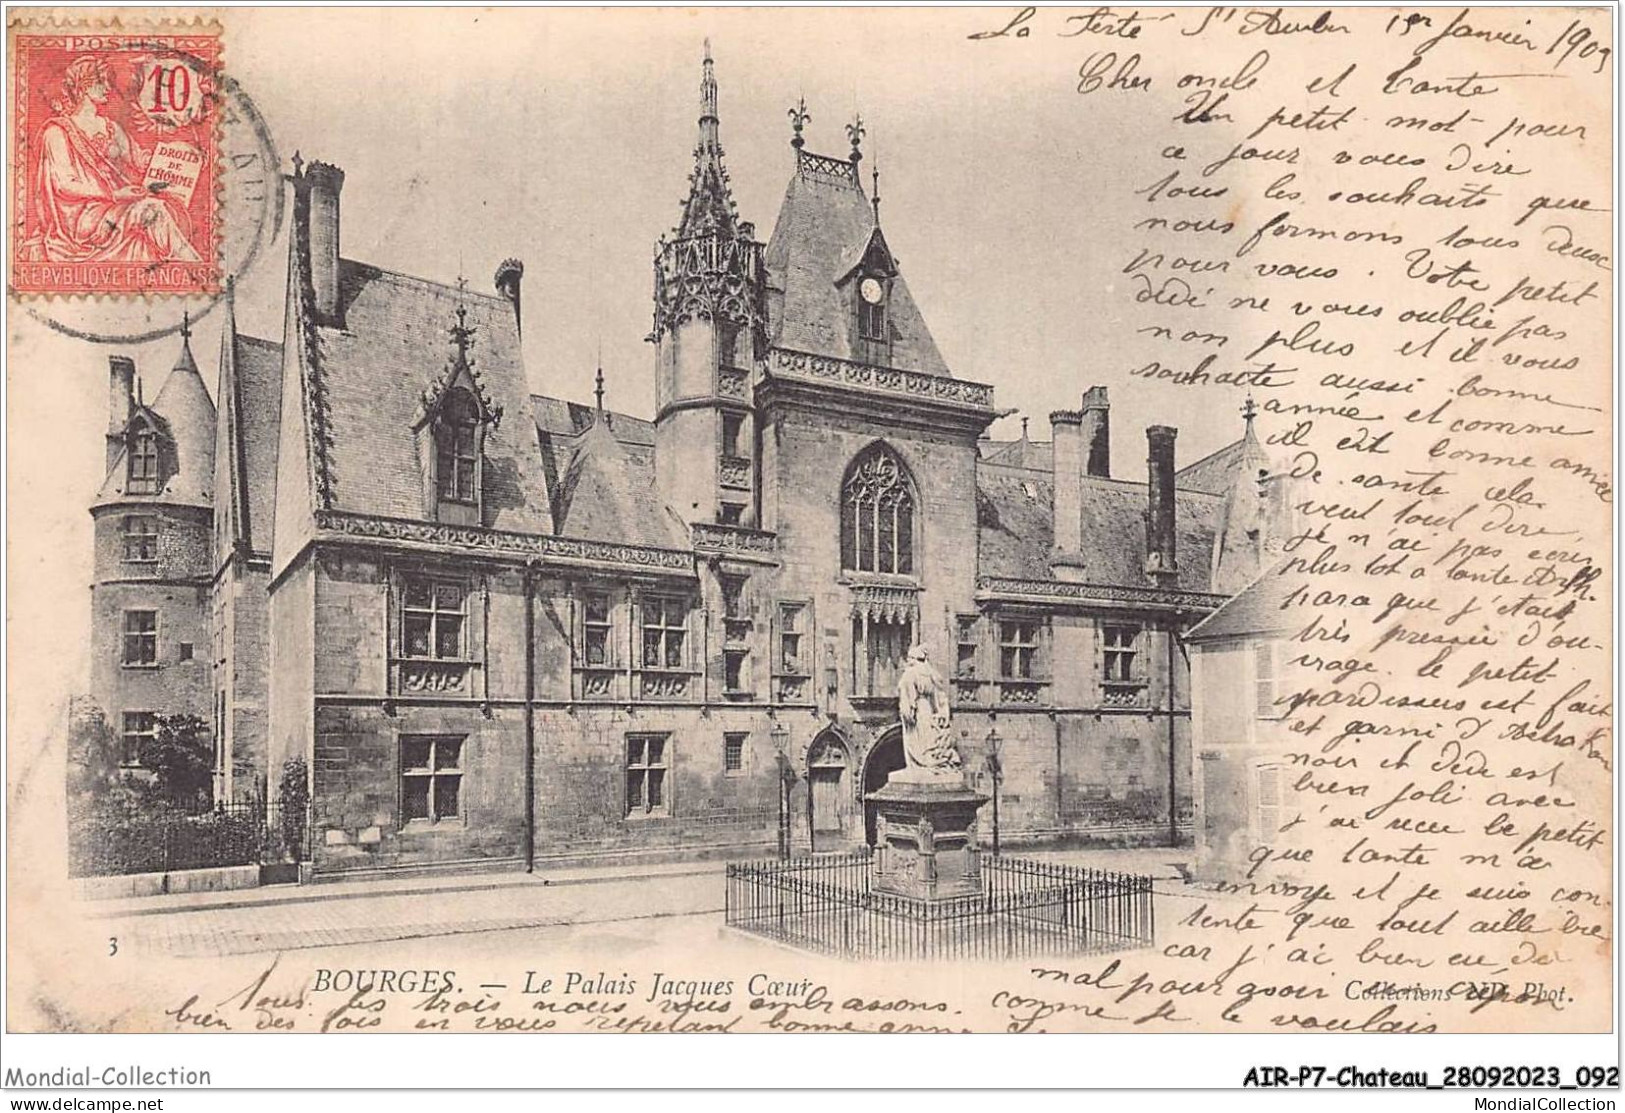 POSTES
10
DROITS
DE
L'HOMME
REPVBLIQVE FRANÇAISE
La Ferté St Aubin 1er Janvier 1903
Cher oncle et tante
Un petit mot pour
ce jour vous dire
tous les souhaits que
nous formons tous deux
pour vous. Votre petit
dédé ne vous oublie pas
non plus et il vous
souhaite aussi bonne
année et comme
il dit bonne année
de sante cela
veut tout dire
je n'ai pas ecris
plus tot a tante
para que j'étais
très pressée d'ou-
vrage. le petit
pardessus est fait
et garni d'Astrakan
noir et dédé est
bien joli avec
j'ai recu le petit
que tante m'a
envoye et je suis con-
tente que tout aille bien
car j'ai bien eu du
mal pour avoir crépon
comme je le voulais
Tous les trois nous vous embrassons
bien des fois en vous repetant bonne année
3
BOURGES. — Le Palais Jacques Cœur
Collections ND Phot.
Mondial-Collection
AIR-P7-Chateau_28092023_092
delcampe.net
MondialCollection